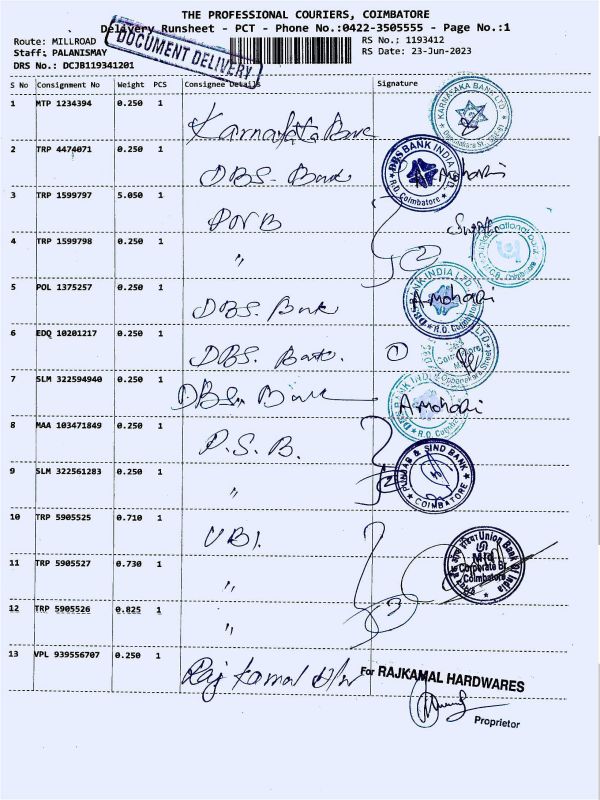 THE PROFESSIONAL COURIERS, COIMBATORE
Delivery Runsheet - PCT - Phone No.:0422-3505555 - Page No.:1
Route: MILLROAD
RS No.: 1193412
Staff: PALANISMAY
DOCUMENT DELIVERY
RS Date: 23-Jun-2023
DRS No.: DCJB119341201
S No Consignment No Weight PCS Consignee Details Signature
1 MTP 1234394 0.250 1
KARNATAKA BANK LTD
Karnataka Bank
2 TRP 4474071 0.250 1
DBS BANK INDIA LTD. R.O. Coimbatore
DBS- Bank A-Mohari
3 TRP 1599797 5.050 1
PNB
4 TRP 1599798 0.250 1
" 2
5 POL 1375257 0.250 1
DBS BANK INDIA LTD. R.O. Coimbatore
DBS. Bank A-Mohari
6 EDQ 10201217 0.250 1
DBS. Bank. 1
7 SLM 322594940 0.250 1
DBS. Bank A-Mohari
8 MAA 103471849 0.250 1
P.S.B.
PUNJAB & SIND BANK COIMBATORE
9 SLM 322561283 0.250 1
" 2
10 TRP 5905525 0.710 1
UBI.
Union Bank Of India
Mid
Corporate Br.
Coimbatore
11 TRP 5905527 0.730 1
"
12 TRP 5905526 0.825 1
" 3
13 VPL 939556707 0.250 1
Raj Kamal H/w
For RAJKAMAL HARDWARES
Proprietor